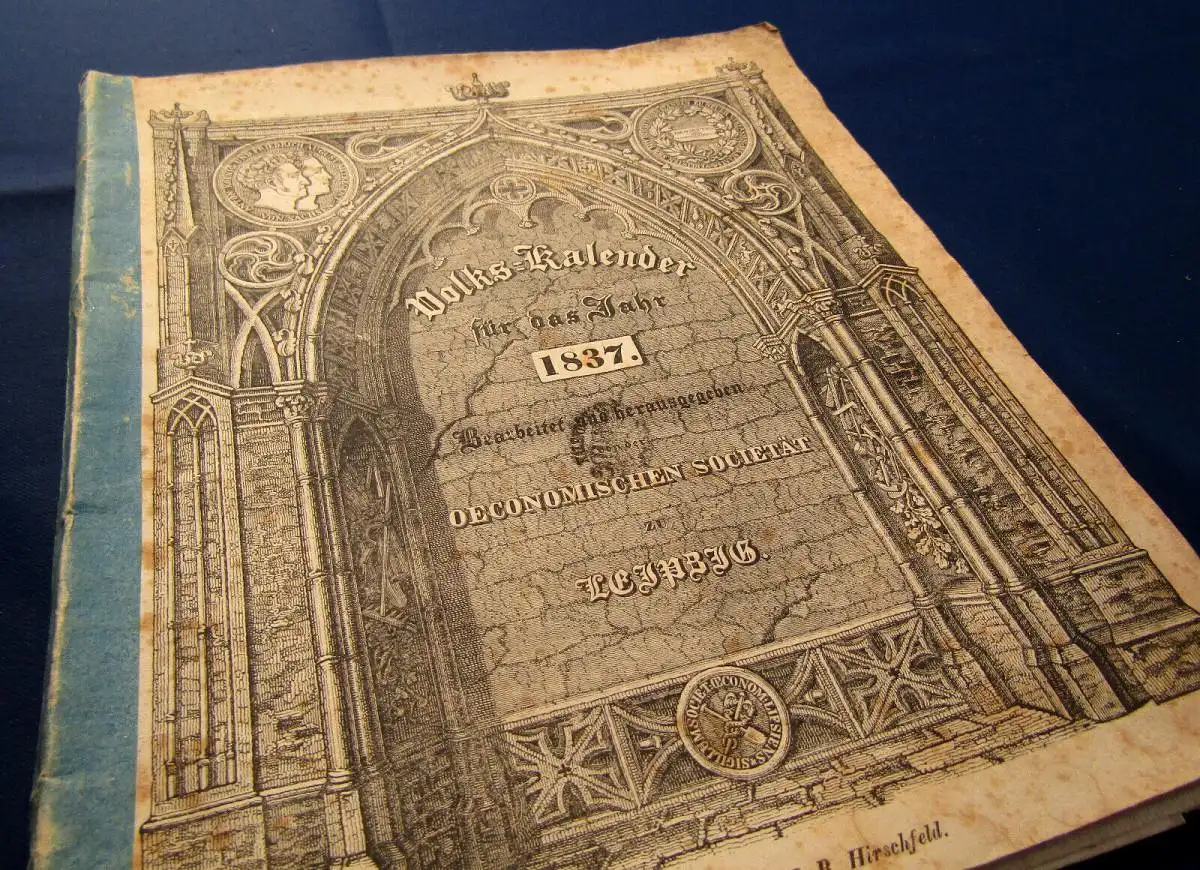 Volks-Kalender
für das Jahr
1837.
Bearbeitet und herausgegeben
von der
OECONOMISCHEN SOCIETÄT
zu
LEIPZIG.
B. Hirschfeld.